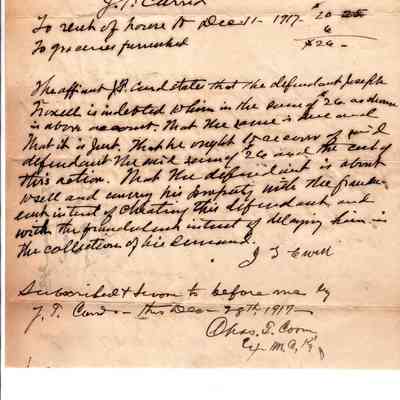 J.T. Curd
To rent of house to Dec 1 - 1917 $20
To groceries furnished 6
$26 -
The affiant J.T. Curd states that the defendant Joseph
Troxell is indebted to him in the sum of $26 as shown
in above account. That the same is due and
That it is Just. That he ought to recover of said
defendant the said sum of $26 and the cost of
this action. That the defendant is about
to sell and convey his property with the fraudu-
lent intent of cheating this defendant and
with the fraudulent intent of delaying him in
the collection of his demand.
J T Curd
Subscribed & Sworn to before me by
J. T. Curd - this Dec - 28th, 1917 -
Chas. T. Coom